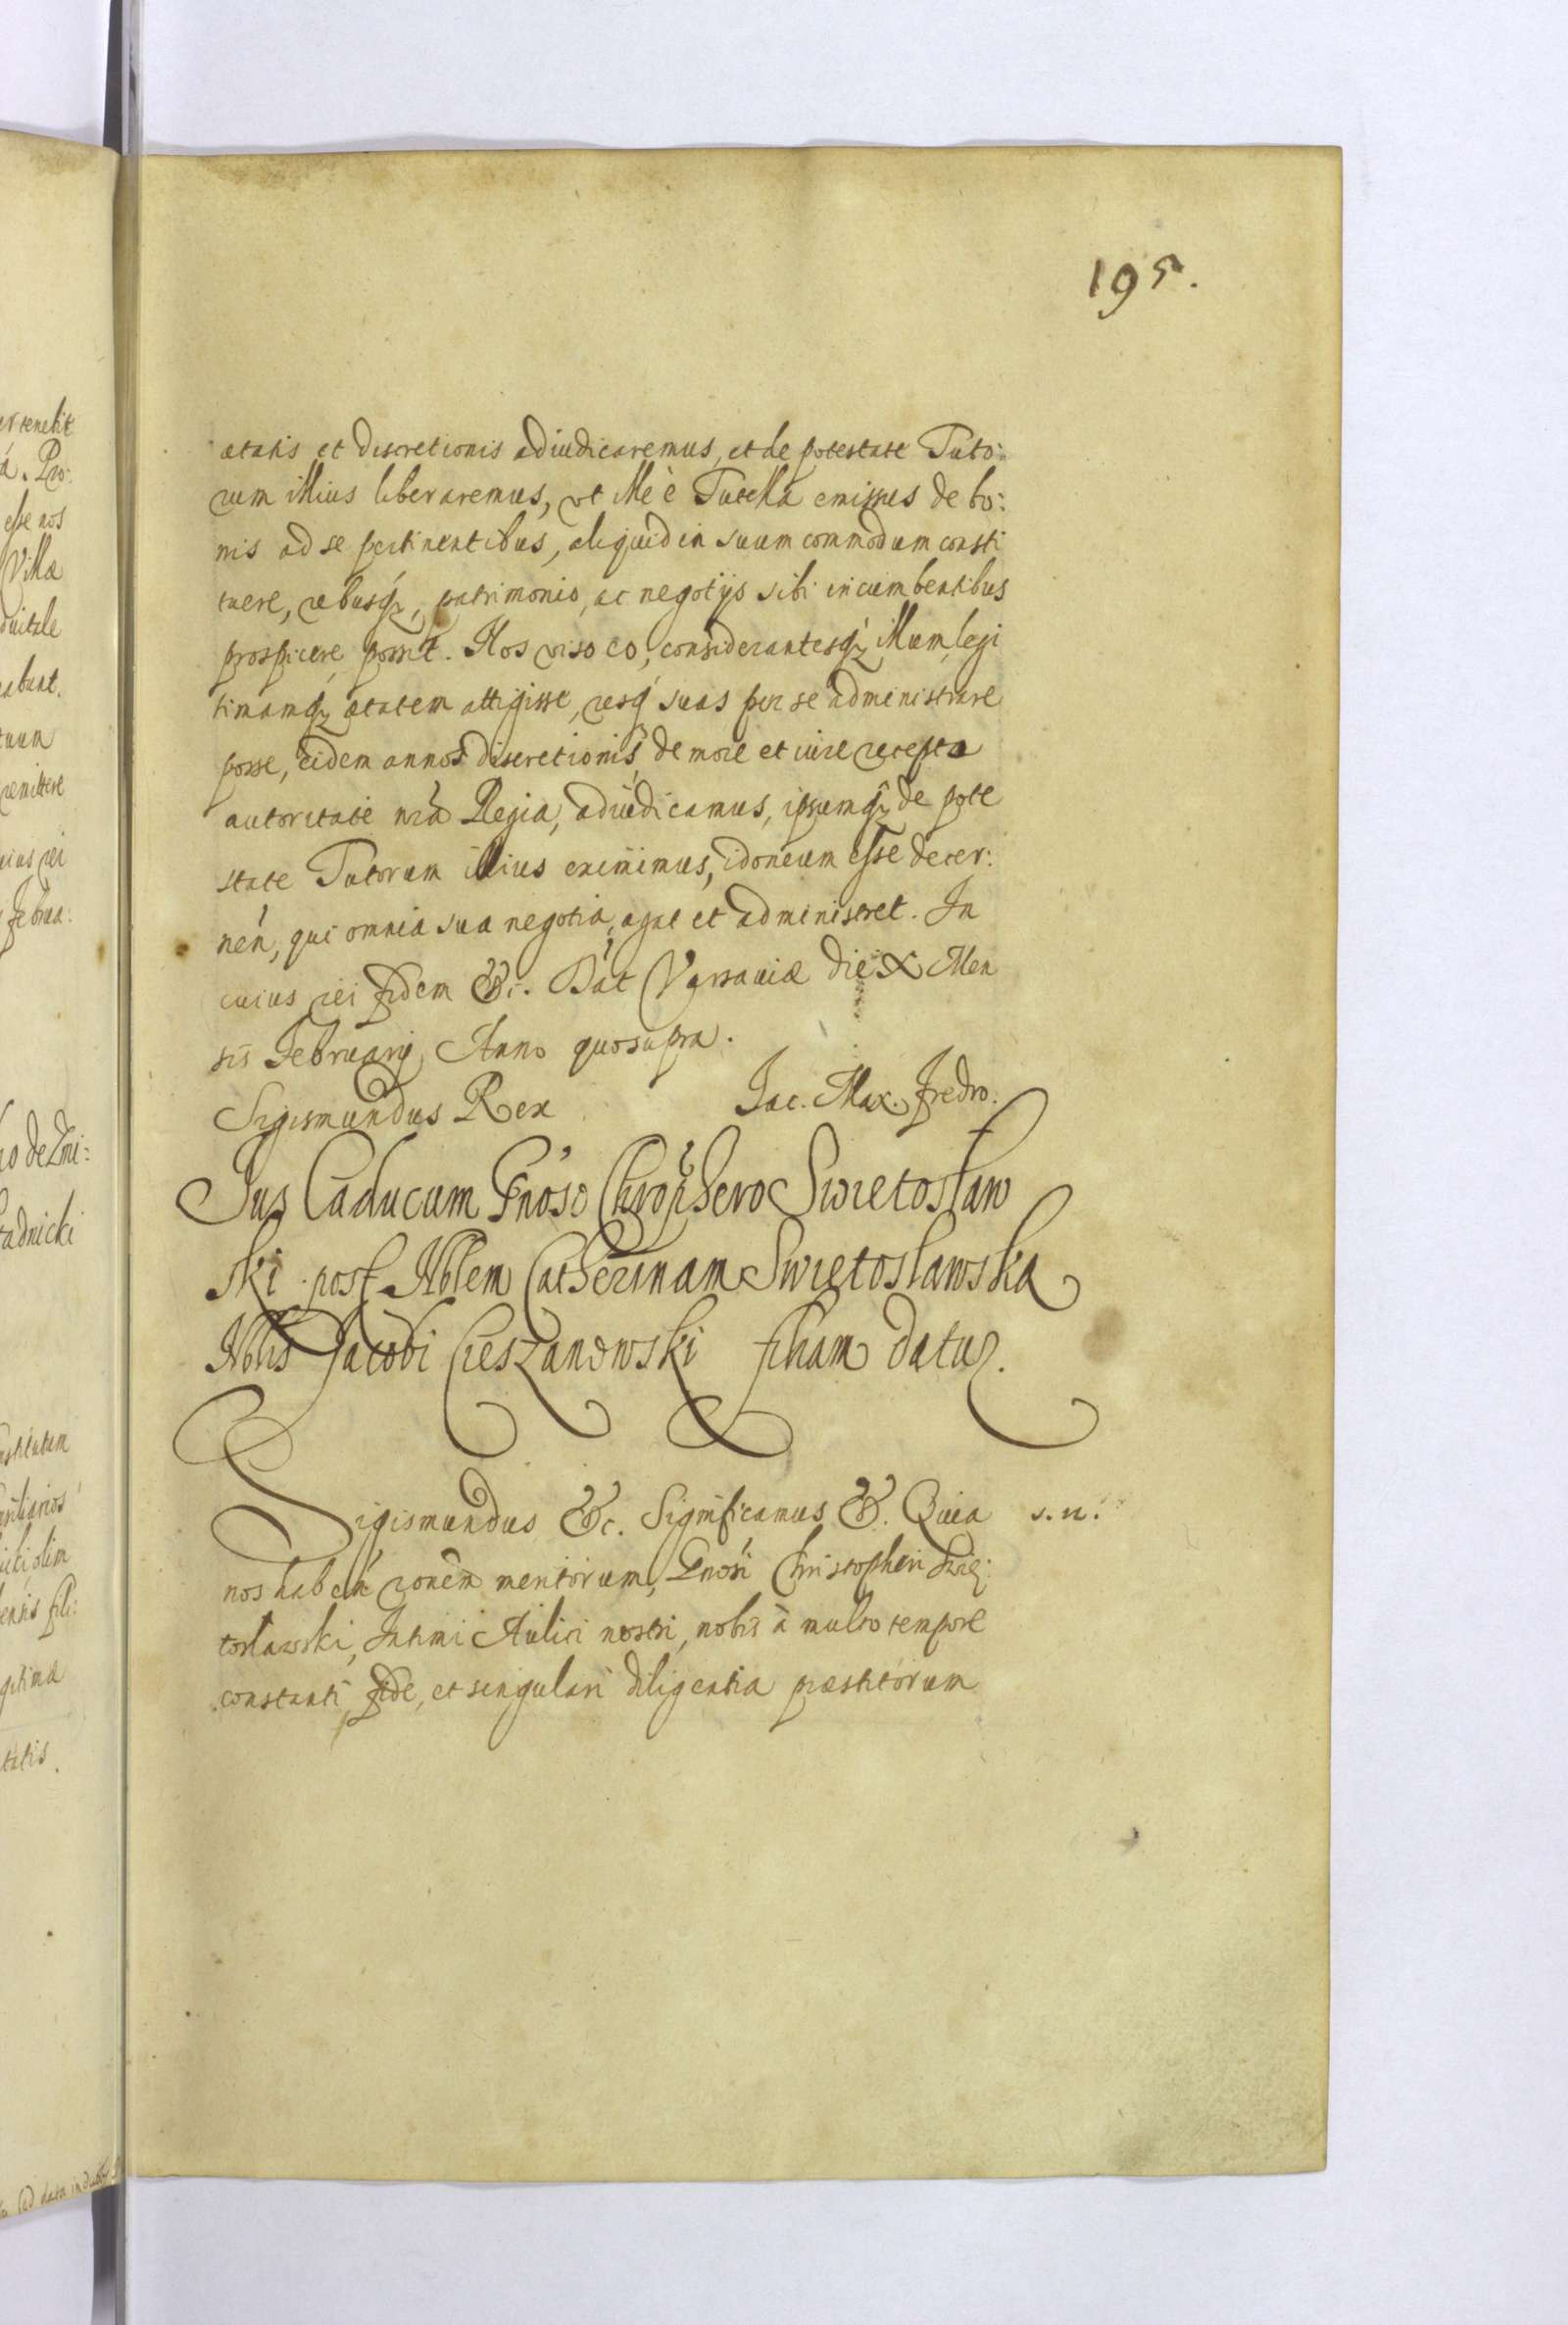 195.
ætatis et discretionis adiudicaremus, et de potestate Tuto:
rum illius liberaremus, vt ille è Tutella emissus de bo:
nis ad se pertinentibus, aliquid in suum commodum consti
tuere, rebusq3, patrimonio, ac negotijs sibi incumbentibus
prospicere possit. Nos viso eo, considerantesq3 illum legi
timamq3 ætatem attigisse, resq3 suas per se administrare
posse, eidem annos discretionis de more et iure recepto
autoritate nrã Regia, adiudicamus, ipsumq3 de pote
state Tutorum illius eximimus, idoneum esse decer:
neñ, qui omnia sua negotia agat et administret. In
cuius rei fidem &c. Dat Varsauiæ die X Men
sis Februarij Anno quo supra.
Sigismundus Rex Jac. Max. Fredro.
Jus Caducum Gnoso Chrophero Swietosław
ski post Nblem Catherinam Swietosławska
Nblis Jacobi Cieszanowski filiam datur.
Sigismundus &c. Significamus &. Quia s. n.
nos habeñ roñem meritorum, Gnosi Christopheri Swię:
tosławski, Intimi Aulici nostri, nobis à multo tempore
constanti fide, et singulari diligentia præstitorum
ertenebit
á. Pro:
esse nos
Villæ
abunt.
remittere
uius rei
Februa:
no de Zmi:
Stadnicki
olim
fili:
gitima
tatis.